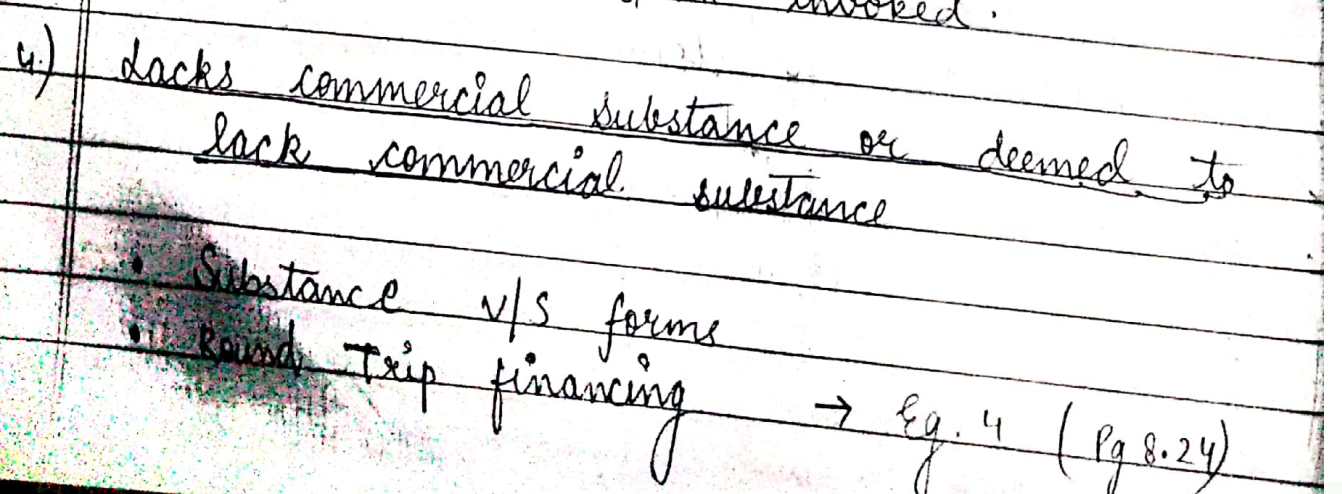 invoked.
4.) Lacks commercial substance or deemed to
lack commercial substance
• Substance v/s forms
• Round Trip financing → Eg. 4 (Pg 8.24)